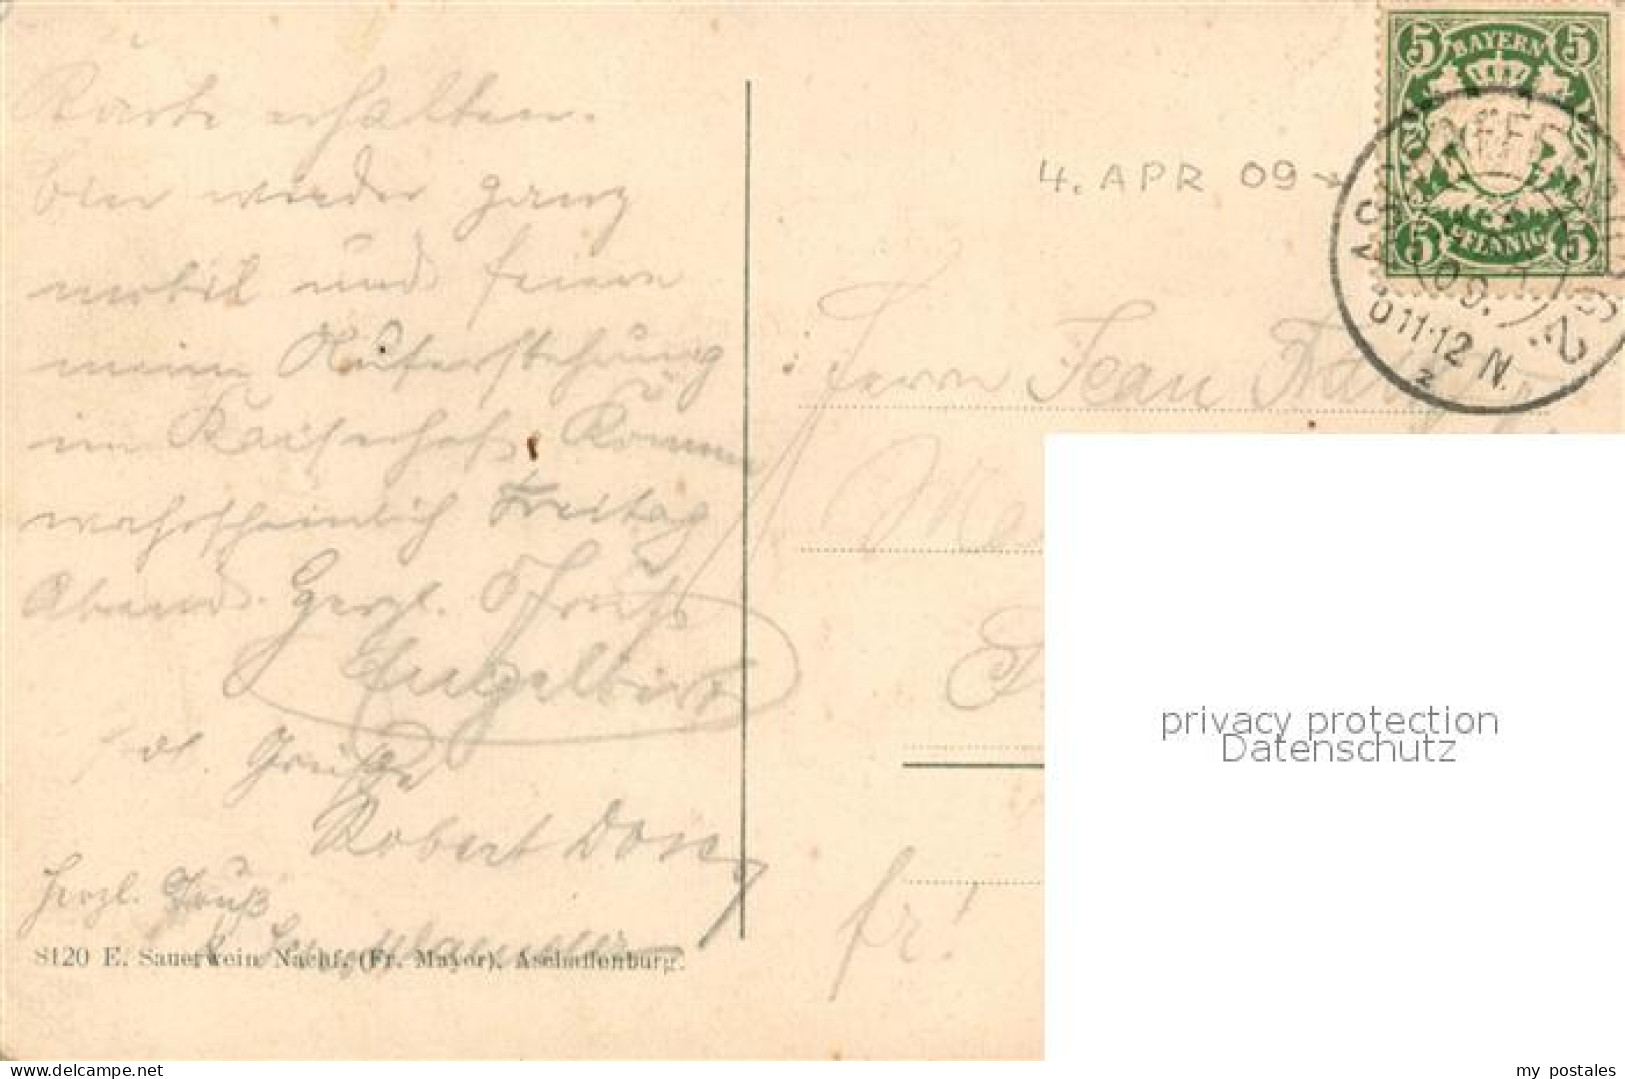 Karte erhalten.
bin wieder ganz
mobil und feiere
meine Auferstehung
im Kaiserhof. Komme
wahrscheinlich Freitag
Abend. Herzl. Gruß
Engelbert
Grüße
Robert
Herzl. Gruß
8120 E. Sauerwein Nachf. (Fr. Mayor), Aschaffenburg.
BAYERN
5 5
5 PFENNIG 5
ASCHAFFENBURG 2.
4.
09.
11-12 N.
2
4. APR 09
Herrn Jean
fr!
privacy protection
Datenschutz
ak-ansichtskarten.de
my postales